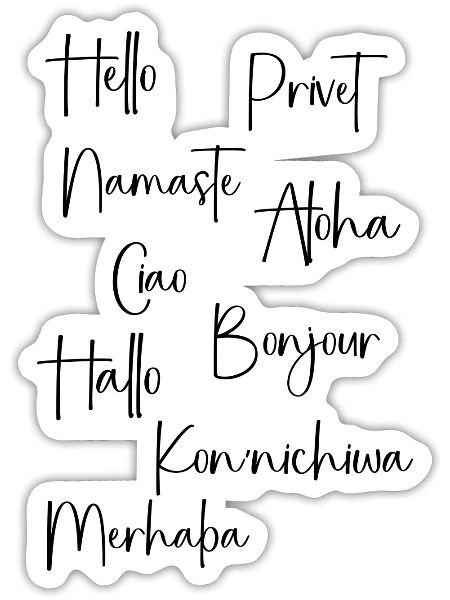 Hello
Privet
Namaste
Aloha
Ciao
Bonjour
Hallo
Kon'nichiwa
Merhaba